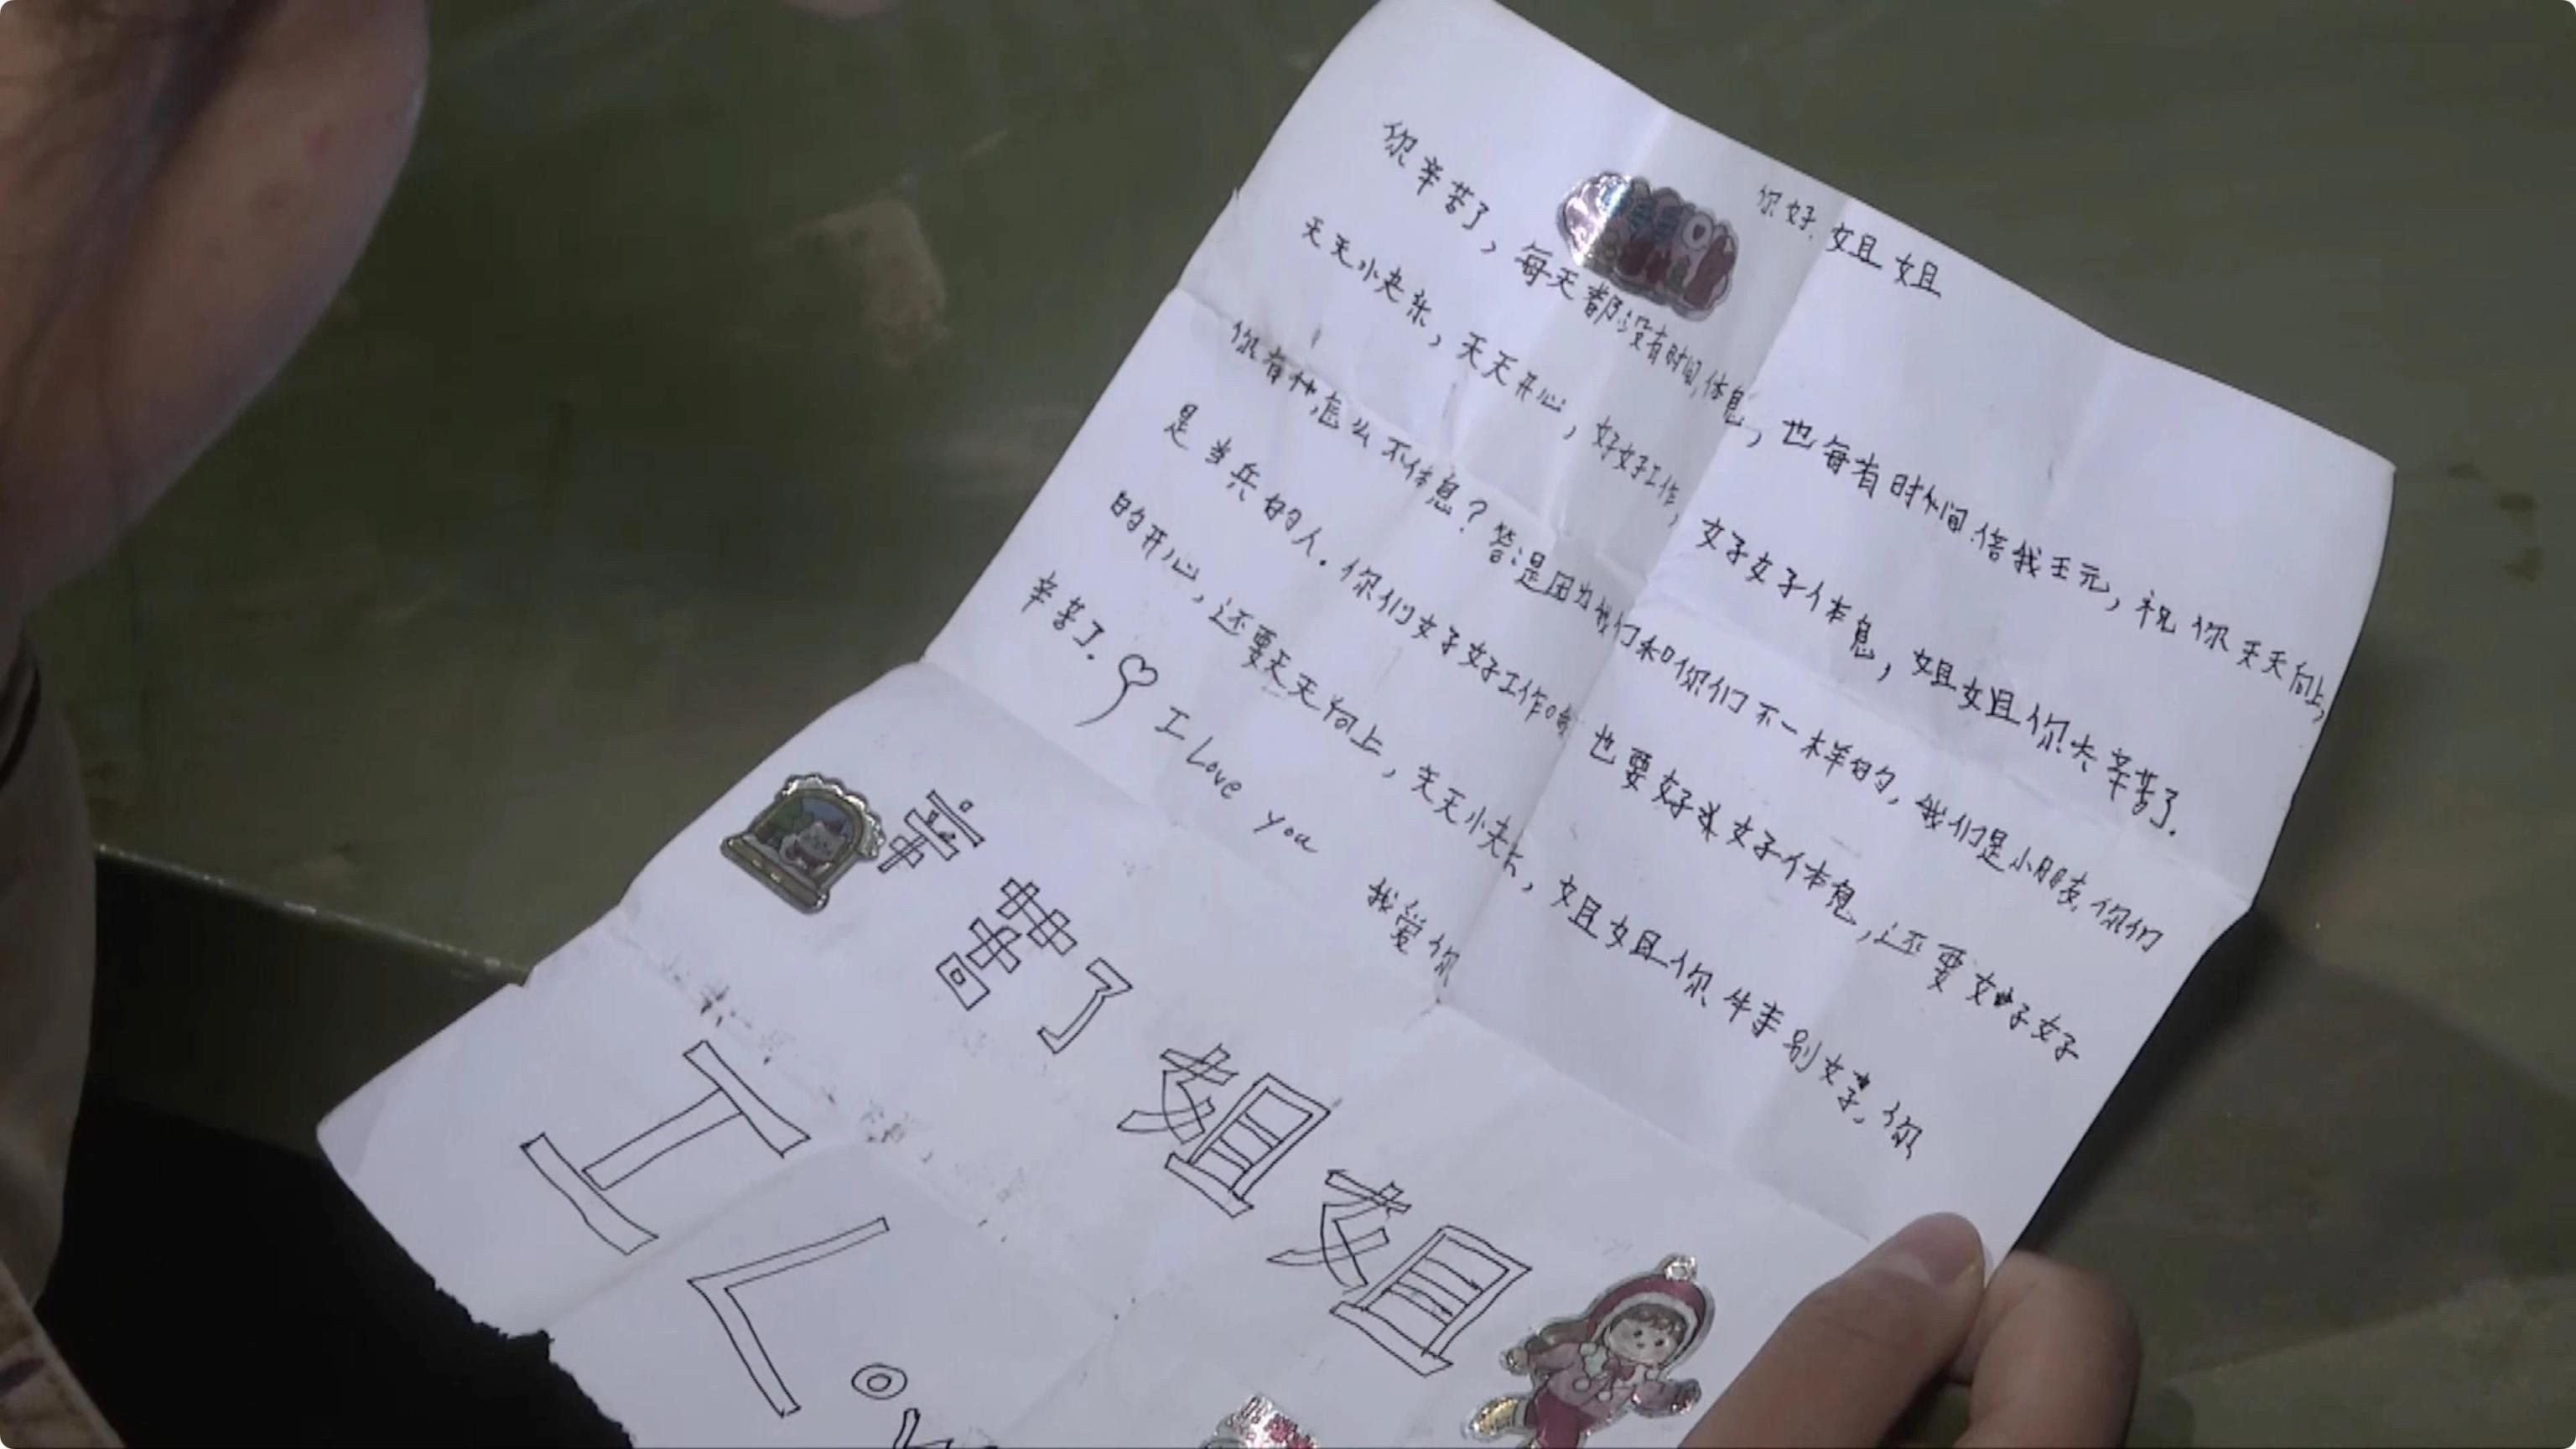 你好 姐姐
你辛苦了，每天都没有时间休息，也每有时间倍我王元，祝你天天向上，
天天小夬乐，天天开心，好好工作，好好休息，姐姐你大辛苦了.
你有种怎么不休息？答:是因为我们和你们不一样的，我们是小朋友，你们
是当兵的人. 你们好好工作 也要好好休息，还要好好
的开心，还要天天向上，天天小夬乐，姐姐你 别 你
辛苦了. I Love you 我爱你
辛苦了 姐姐
I L